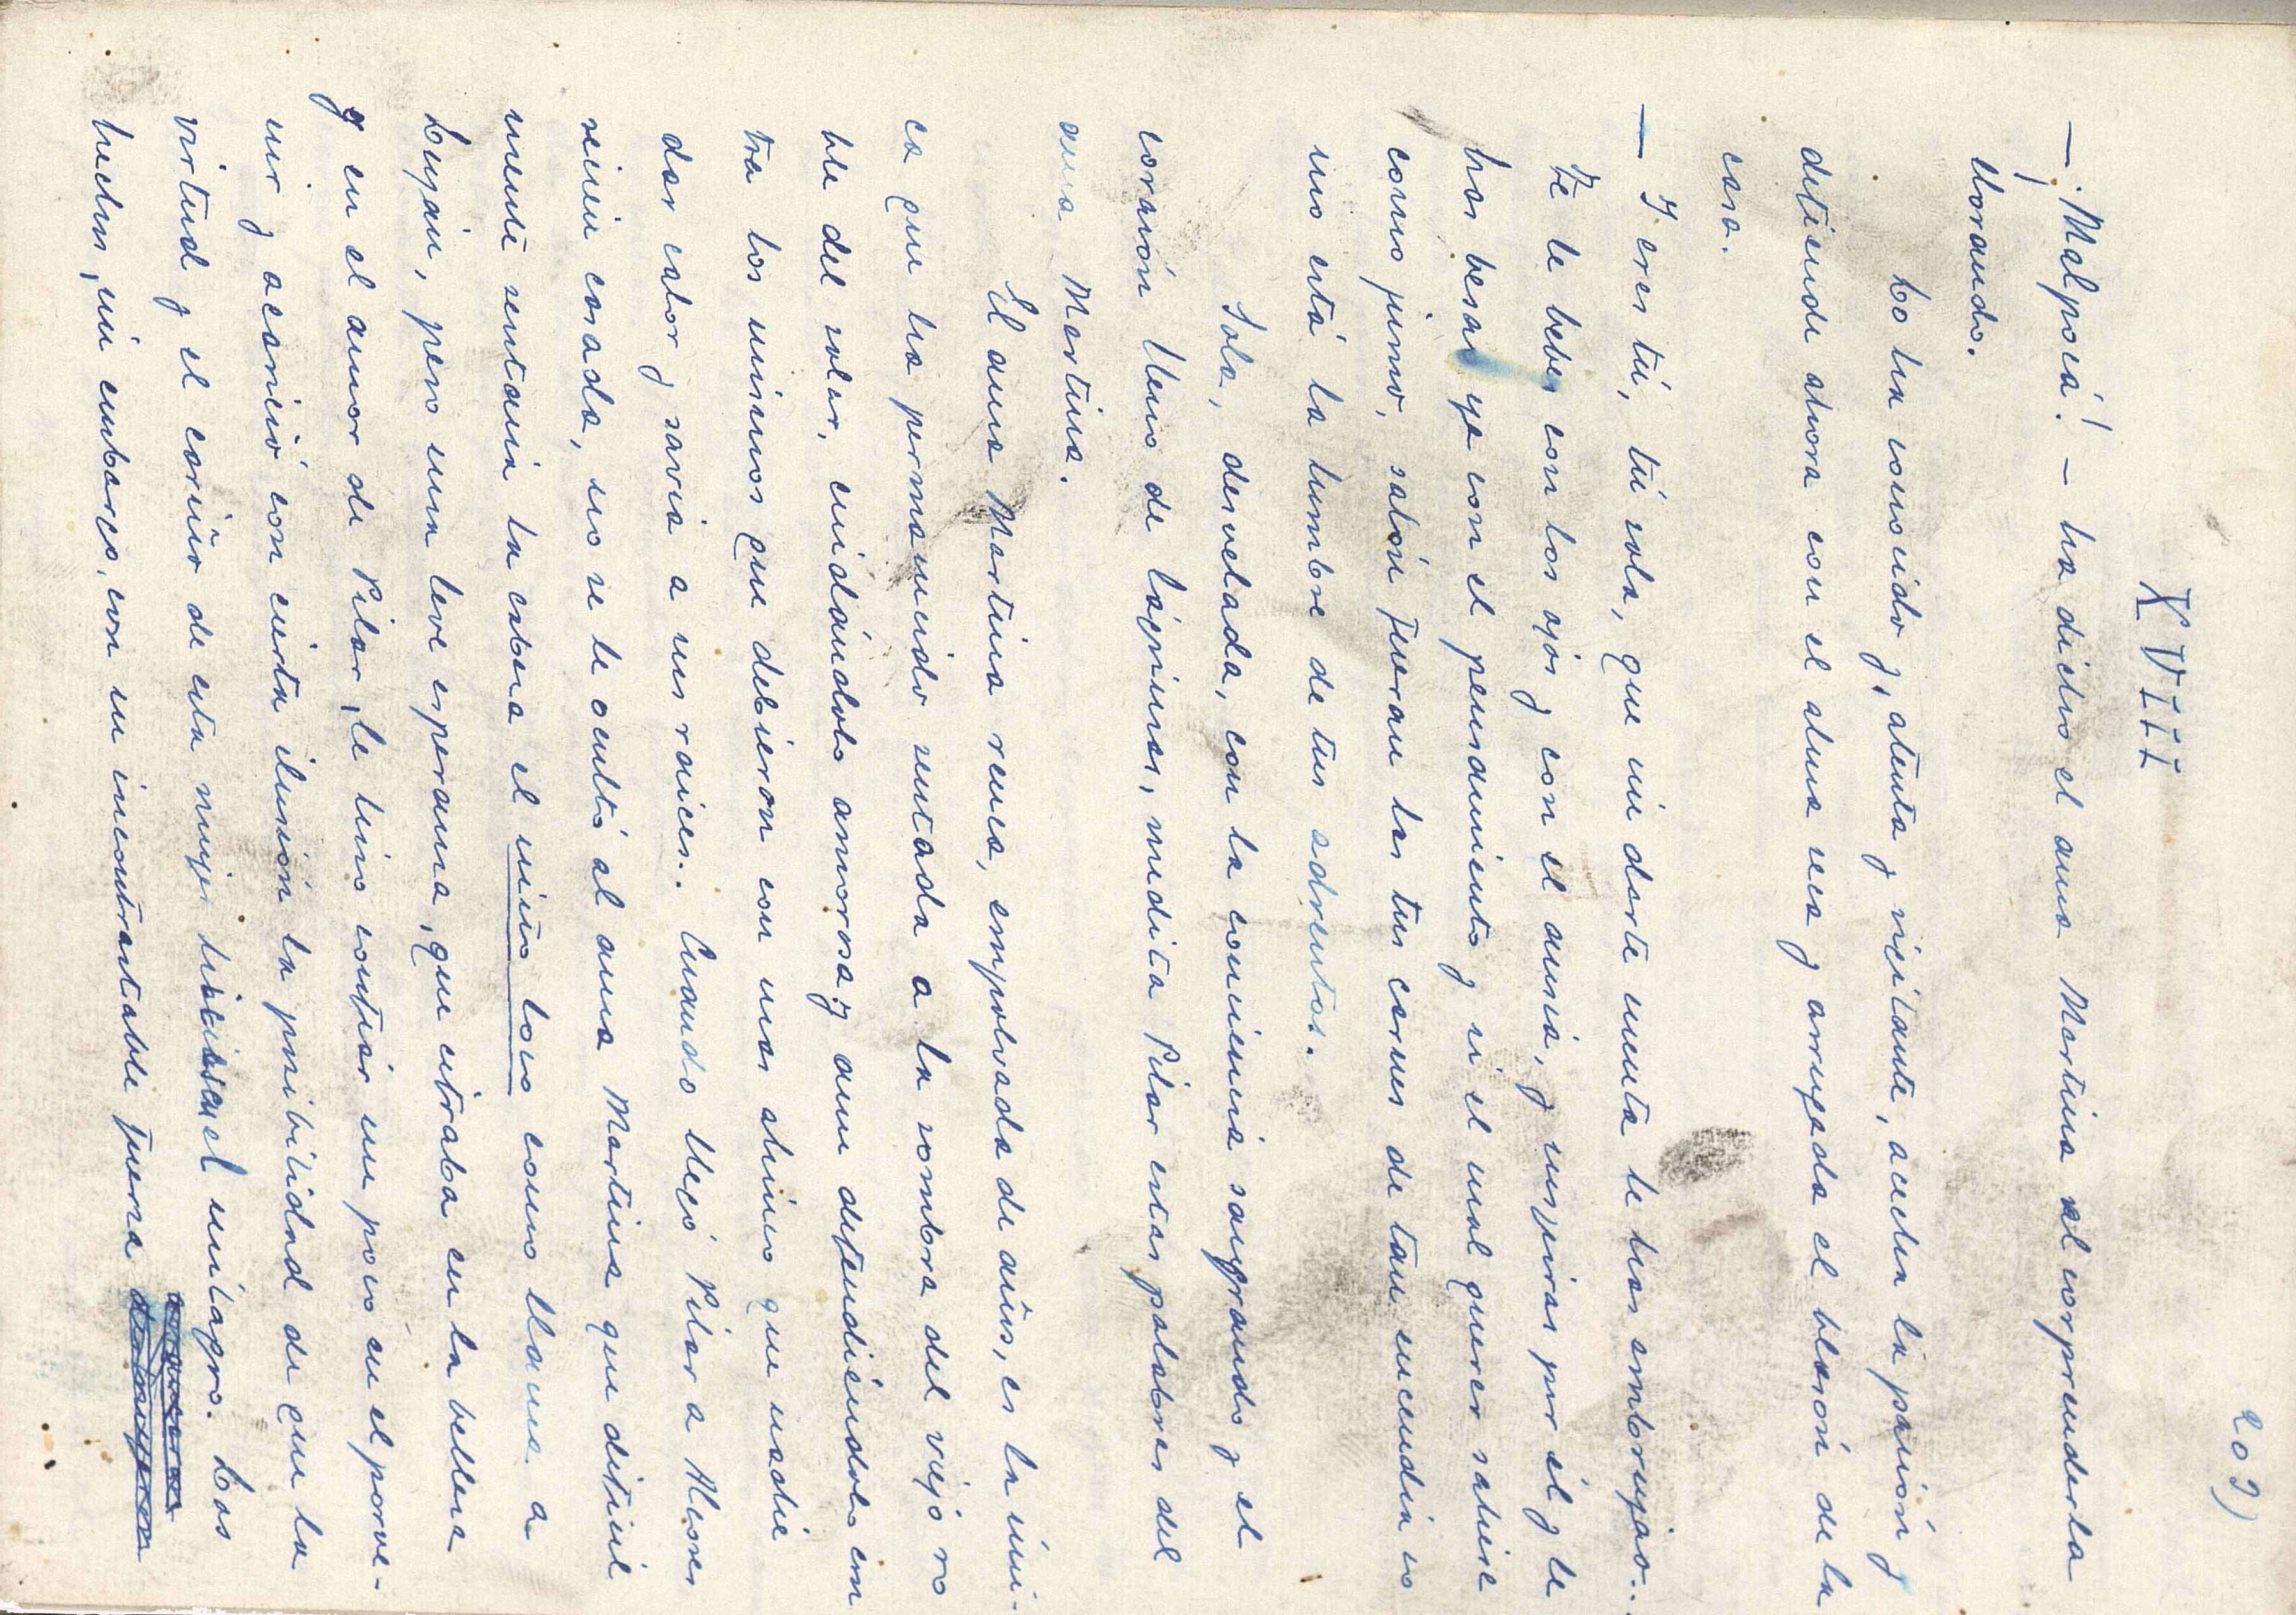 209)
XVIII
— ¡Malpocá! – ha dicho el ama Martina al sorprenderla
llorando.
Lo ha conocido y, atenta y vigilante, acecha la pasión y
defiende ahora con el alma seca y arrugada el blasón de la
casa.
— Y eres tú, tú sola, que sin darte cuenta le has embrujao.
Te le bebes con los ojos y con el ansia, y suspiras por él y le
has besao ya con el pensamiento y si el mal querer saliese
como jumo, salón fueran las tus carnes de tan encendía co
mo está la lumbre de tus adrentos.
Sola, desvelada, con la conciencia sangrando y el
corazón lleno de lágrimas, medita Pilar estas palabras del
ama Martina.
El ama Martina seca, empolvada de años, es la úni-
ca que ha permanecido sentada a la sombra del viejo ro
ble del solar, cuidándolo amorosa y aun defendiéndolo con
tra los mismos que debieron con más ahínco que nadie
dar calor y savia a sus raíces. Cuando llegó Pilar a Alcores
recién casada, no se le ocultó al ama Martina que difícil
mente sentaría la cabeza el niño loco como llama a
Luyán, pero una leve esperanza, que cifraba en la belleza
y en el amor de Pilar, le hizo confiar un poco en el porve-
nir y acarició con cierta ilusión la posibilidad de que la
virtud y el cariño de esta mujer hiciesen el milagro. Los
hechos, sin embargo, con su incontrastable fuerza